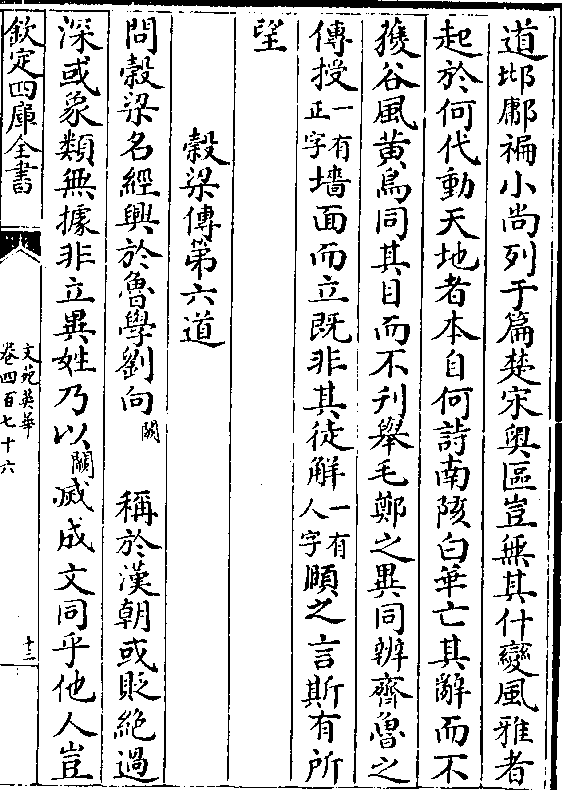 道邶鄘褊小尚列于篇楚宋奥區豈無其什變風雅者
起於何代動天地者本自何詩南陔白華亡其辭而不
獲谷風黄鳥同其目而不刋舉毛鄭之異同辨齊魯之
傳授一有正字墻面而立既非其徒解一有人字頤之言斯有所
望
穀梁傳第六道
問穀梁名經興於魯學劉向闕稱於漢朝或貶絶過
深或象類無據非立異姓乃以闕滅成文同乎他人豈
欽定四庫全書
文苑英華
卷四百七十六
十三